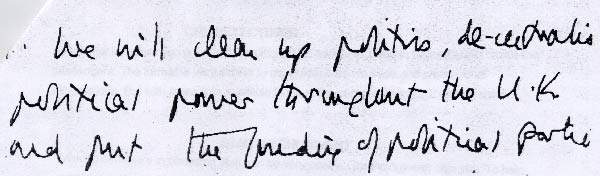 .. We will clean up politics, de-centralis
political power throughout the U.K.
and put the funding of political partie